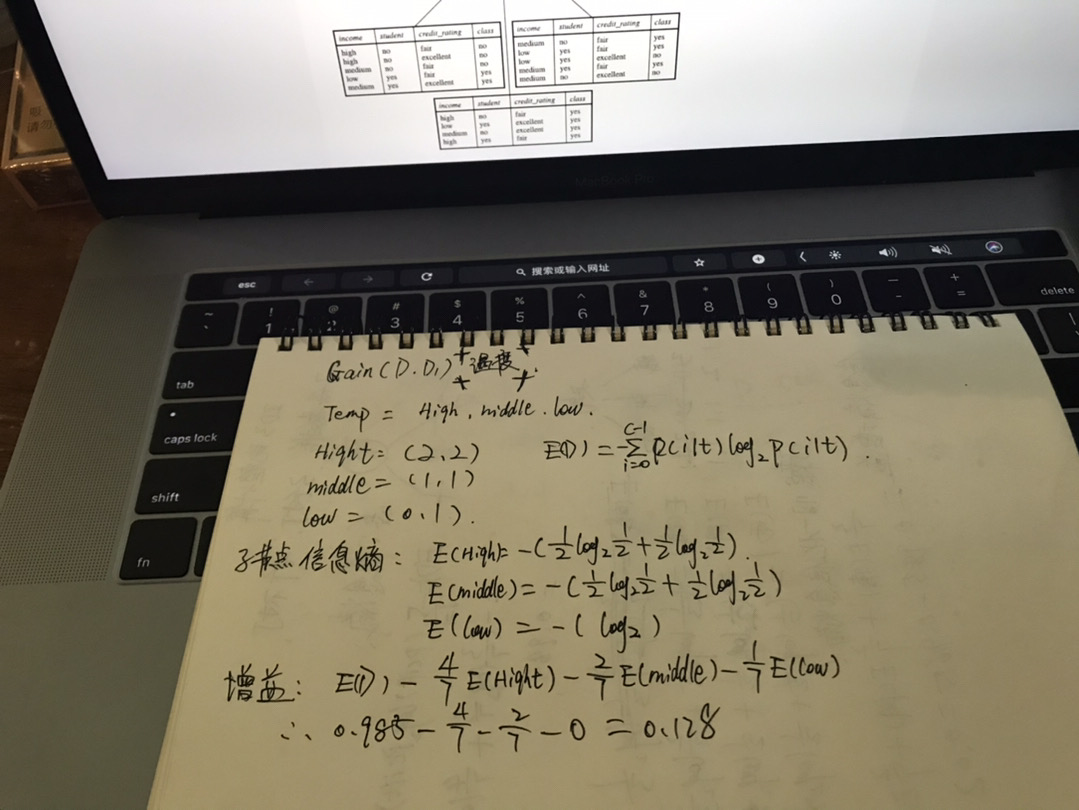 income student credit_rating class
high no fair no
high no excellent no
medium no fair no
low yes fair yes
medium yes excellent yes
income student credit_rating class
medium no fair yes
low yes fair yes
low yes excellent no
medium yes fair yes
medium no excellent no
income student credit_rating class
high no fair yes
low yes excellent yes
medium no excellent yes
high yes fair yes
MacBook Pro
esc
搜索或输入网址
~ `
! 1
@ 2
# 3
$ 4
% 5
^ 6
& 7
* 8
( 9
) 0
— -
+ =
delete
tab
caps lock
shift
fn
Gain(D.D₁) 温度.
Temp = High, middle. low.
Hight = (2,2)
E(D) = -∑ᵢ₌₀^{C-1} P(i|t) log₂ P(i|t).
middle = (1,1)
low = (0,1).
子节点信息熵: E(High) = -(½log₂½ + ½log₂½).
E(middle) = -(½log₂½ + ½log₂½)
E(low) = -( log₂ )
增益: E(D) - 4/7 E(Hight) - 2/7 E(middle) - 1/7 E(low)
∴ 0.985 - 4/7 - 2/7 - 0 = 0.128